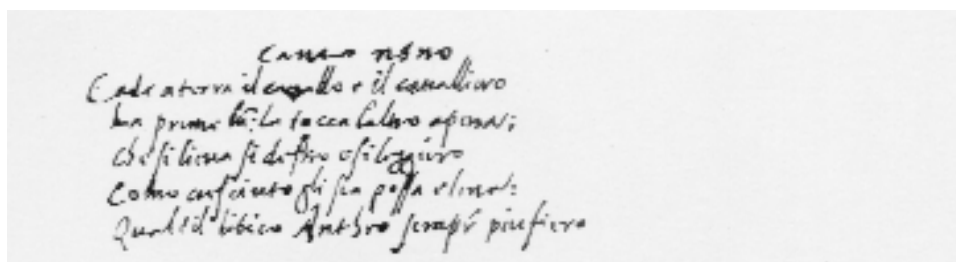 Canto nono
Cade a terra il cavallo e il cavalliero
Ma prima la tocca laltro apena;
che si lieva si destro e si leggiero
Como cresciuto gli sia possa e lena:
Qual il libico Antheo sempr piu fiero